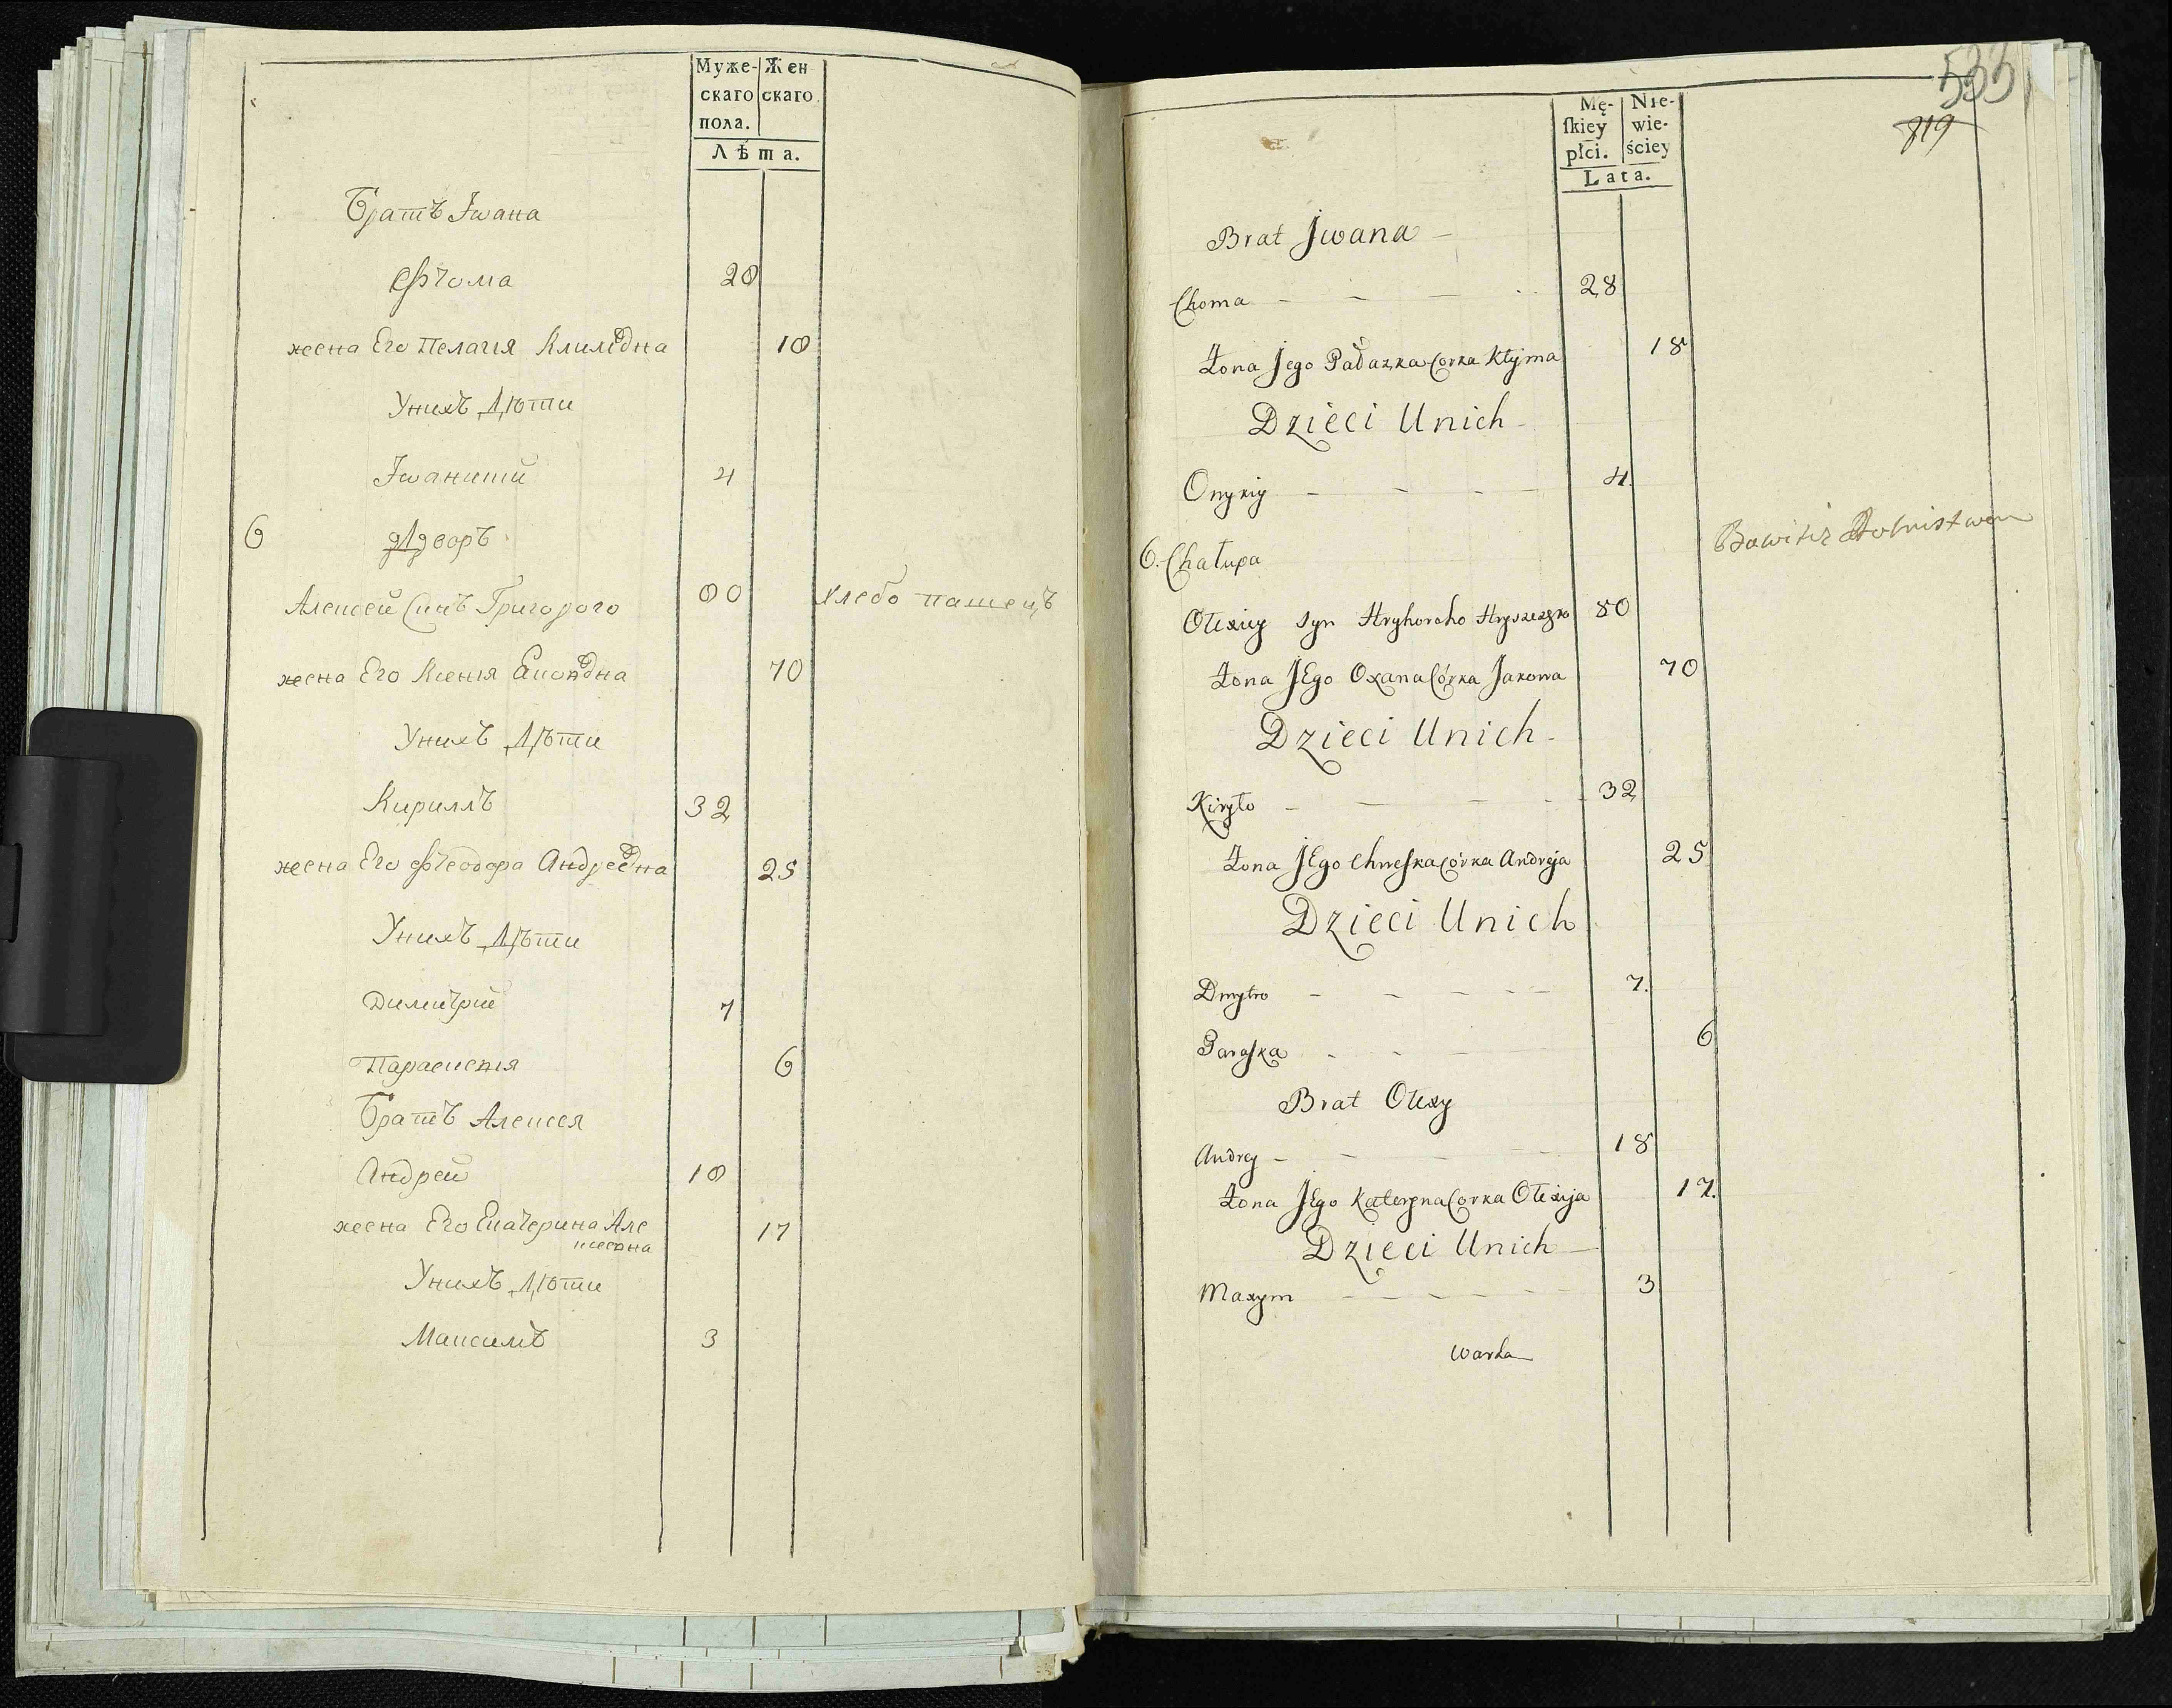 Муже- Жен
скаго скаго
пола.
Лѣта.
Братъ Iwана
Ѳома 28
жена Его Пелагія Климовна 18
Унихъ Дѣти
Iwаникій 4
6 Дворъ
Алексѣй Синъ Григорого 80 хлебо пашецъ
жена Его Ксенія Яковвна 70
Унихъ Дѣти
Кириллъ 32
жена Его Феодора Андреевна 25
Унихъ Дѣти
Димитрій 7
Параскевія 6
Братъ Алексея
Андрей 18
жена Его Екатерина Але
ксеевна 17
Унихъ Дѣти
Максимъ 3
533
819
Mę- Nie-
ſkiey wie-
płci. ściey
Lata.
Brat Jwana
Choma 28
Żona Jego Pałazka Corka Kłyma 18
Dzieci Unich
Onykiy 4.
6. Chałupa Bawi się Rolnistwem
Olexiy syn Hryhorcho Hryszczyko 80
Żona JEgo Oxana Córka Jakowa 70
Dzieci Unich
Kiryło 32
Żona JEgo Chweſka Córka Andreja 25
Dzieci Unich
Dmytro 7.
Paraſka 6
Brat Olexy
Andrey 18
Żona JEgo Kateryna Corka Olexija 17.
Dzieci Unich
Maxym 3